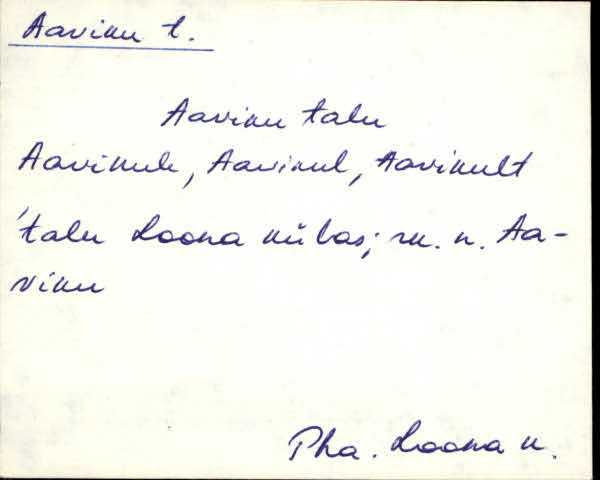 Aaviku t.
Aaviku talu
Aavikule, Aavikul, Aavikult
'talu Loona külas; rk. n. Aa-
viku
Pha. Loona k.